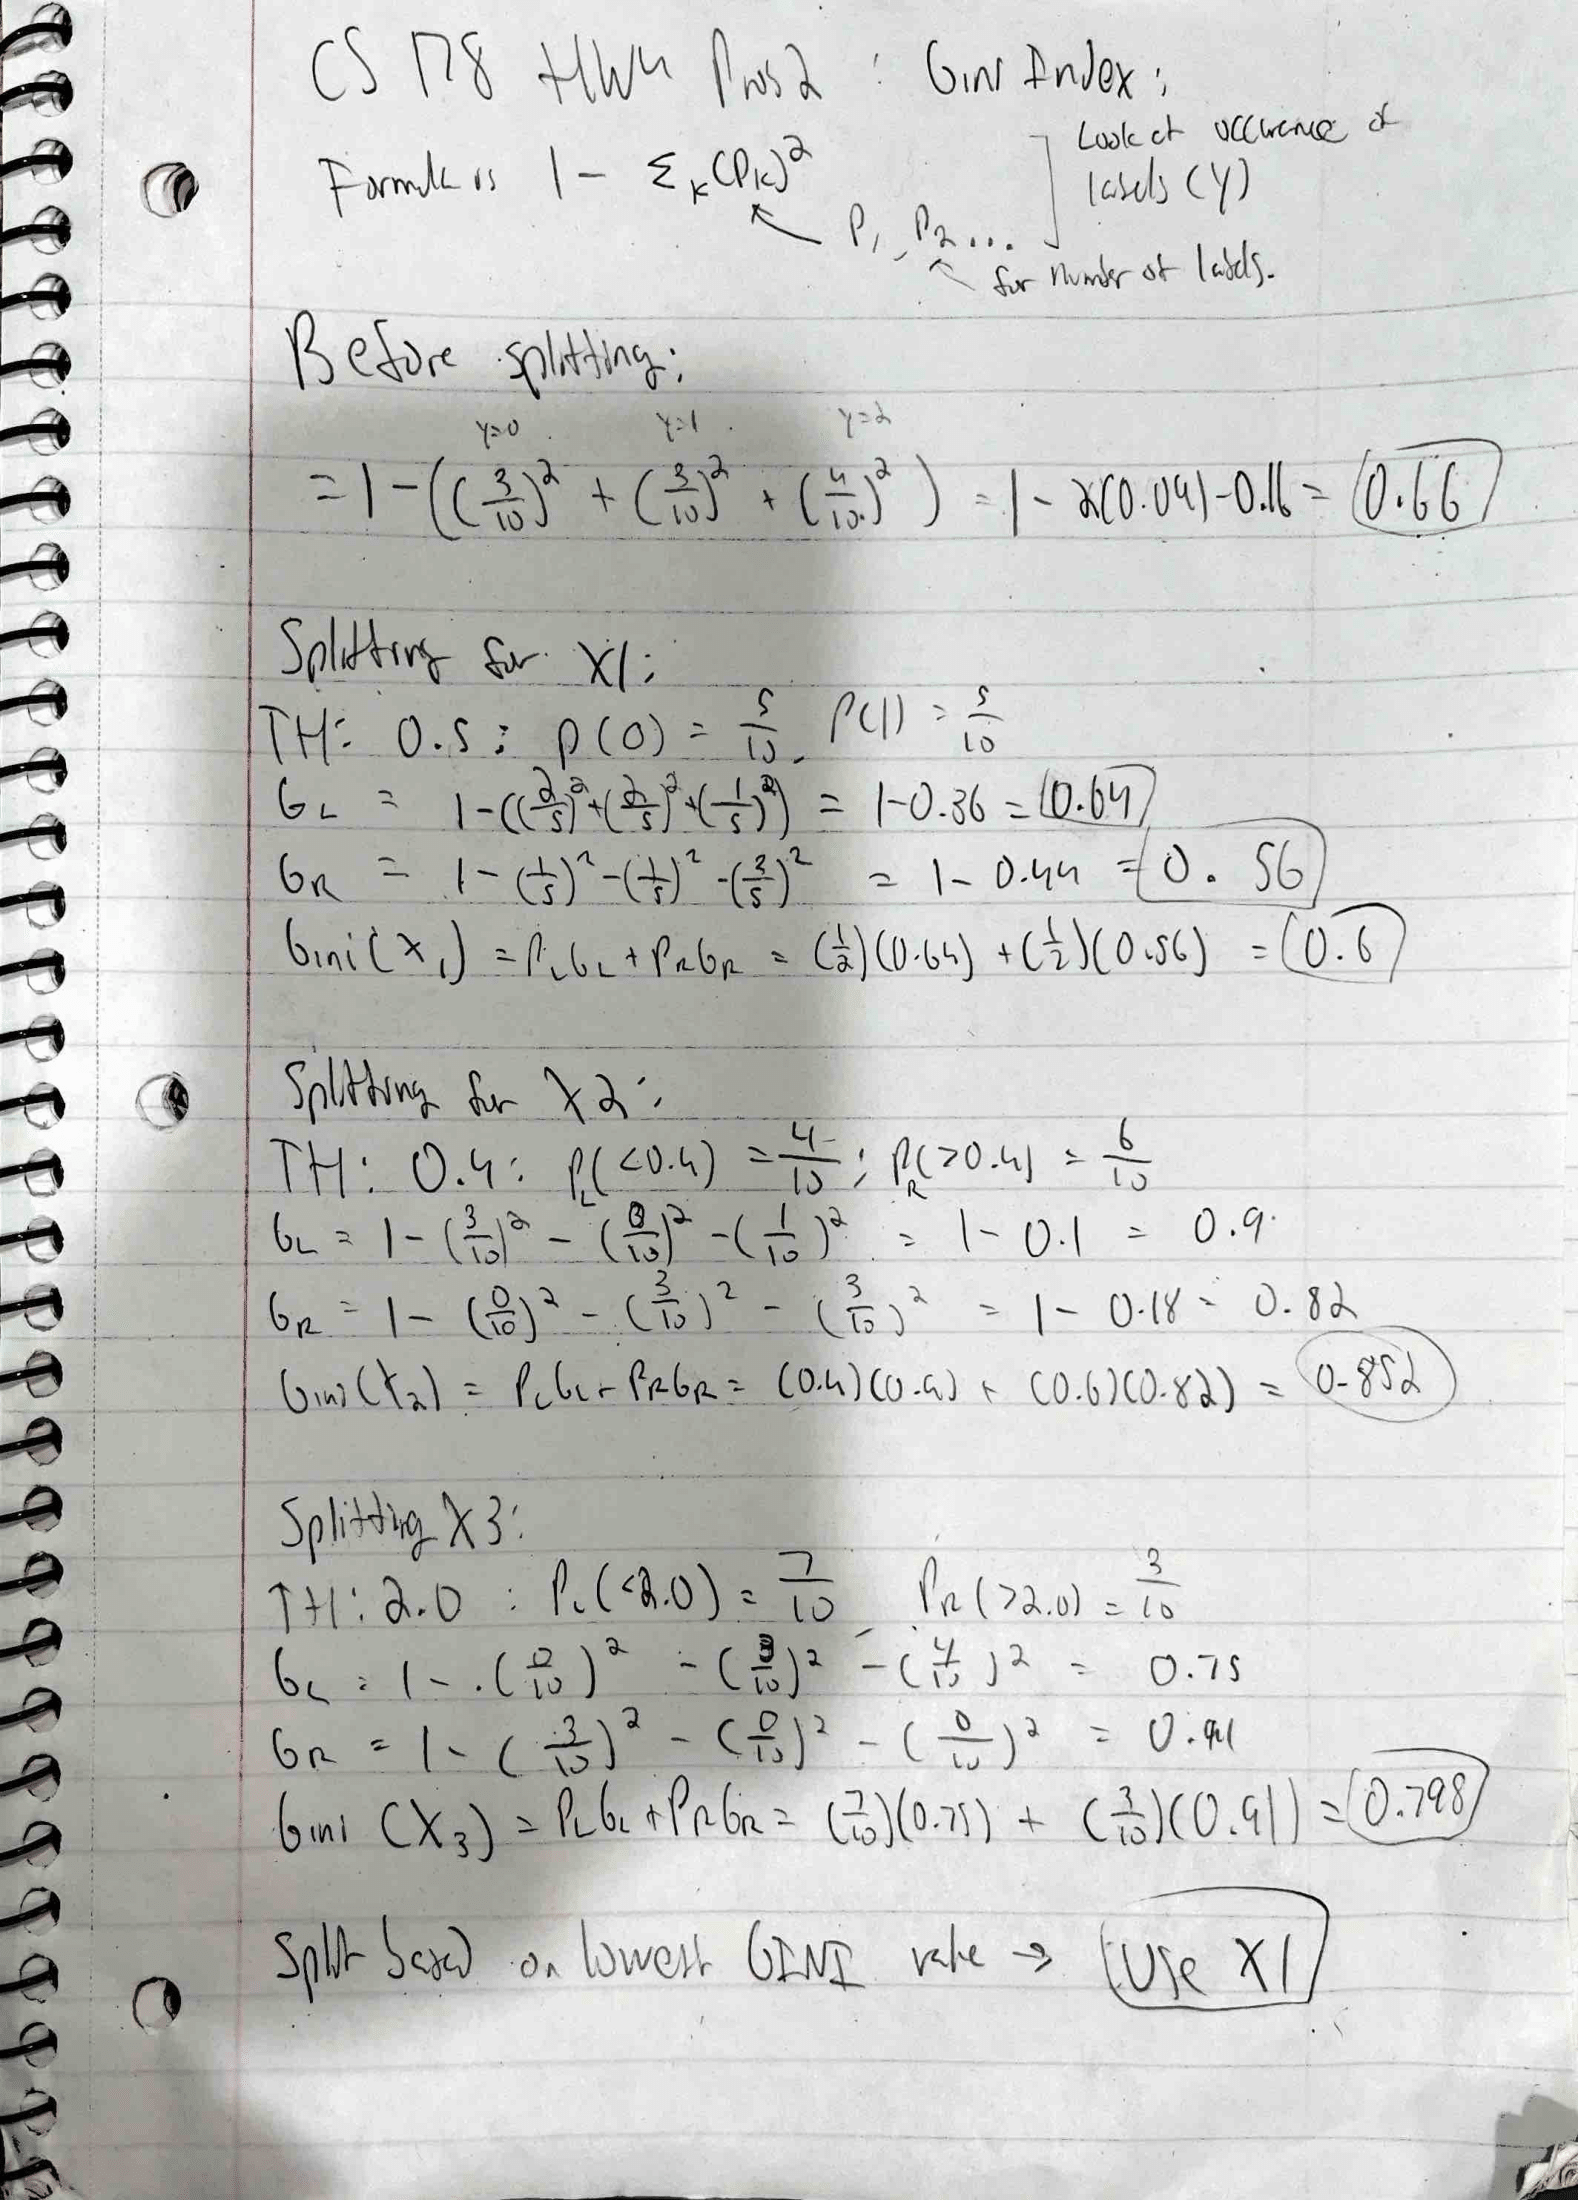 CS 178 HW4 Prob 2 : Gini Index:
Formula is 1 - Σₖ(Pₖ)²
Look at occurence of
labels (Y)
P₁, P₂...
for number of labels.
Before splitting:
Y=0 Y=1 Y=2
= 1-((3/10)² + (3/10)² + (4/10)²) = 1 - 2(0.09) - 0.16 = 0.66
Splitting for X1:
TH: 0.5: P(0) = 5/10, P(1) = 5/10
G_L = 1-((2/5)²+(2/5)²+(1/5)²) = 1-0.36 = 0.64
G_R = 1-(1/5)²-(1/5)²-(3/5)² = 1-0.44 = 0.56
Gini(X₁) = P_L G_L + P_R G_R = (1/2)(0.64) + (1/2)(0.56) = 0.6
Splitting for X2:
TH: 0.4: P_L(<0.4) = 4/10; P_R(>0.4) = 6/10
G_L = 1-(3/10)² - (0/10)² - (1/10)² = 1-0.1 = 0.9
G_R = 1-(0/10)² - (3/10)² - (3/10)² = 1-0.18 = 0.82
Gini(X₂) = P_L G_L + P_R G_R = (0.4)(0.9) + (0.6)(0.82) = 0.852
Splitting X3:
TH: 2.0 : P_L(<2.0) = 7/10 P_R(>2.0) = 3/10
G_L = 1-(0/10)² - (3/10)² - (4/10)² = 0.75
G_R = 1-(3/10)² - (0/10)² - (0/10)² = 0.91
Gini (X₃) = P_L G_L + P_R G_R = (7/10)(0.75) + (3/10)(0.91) = 0.798
Split based on lowest GINI value → Use X1